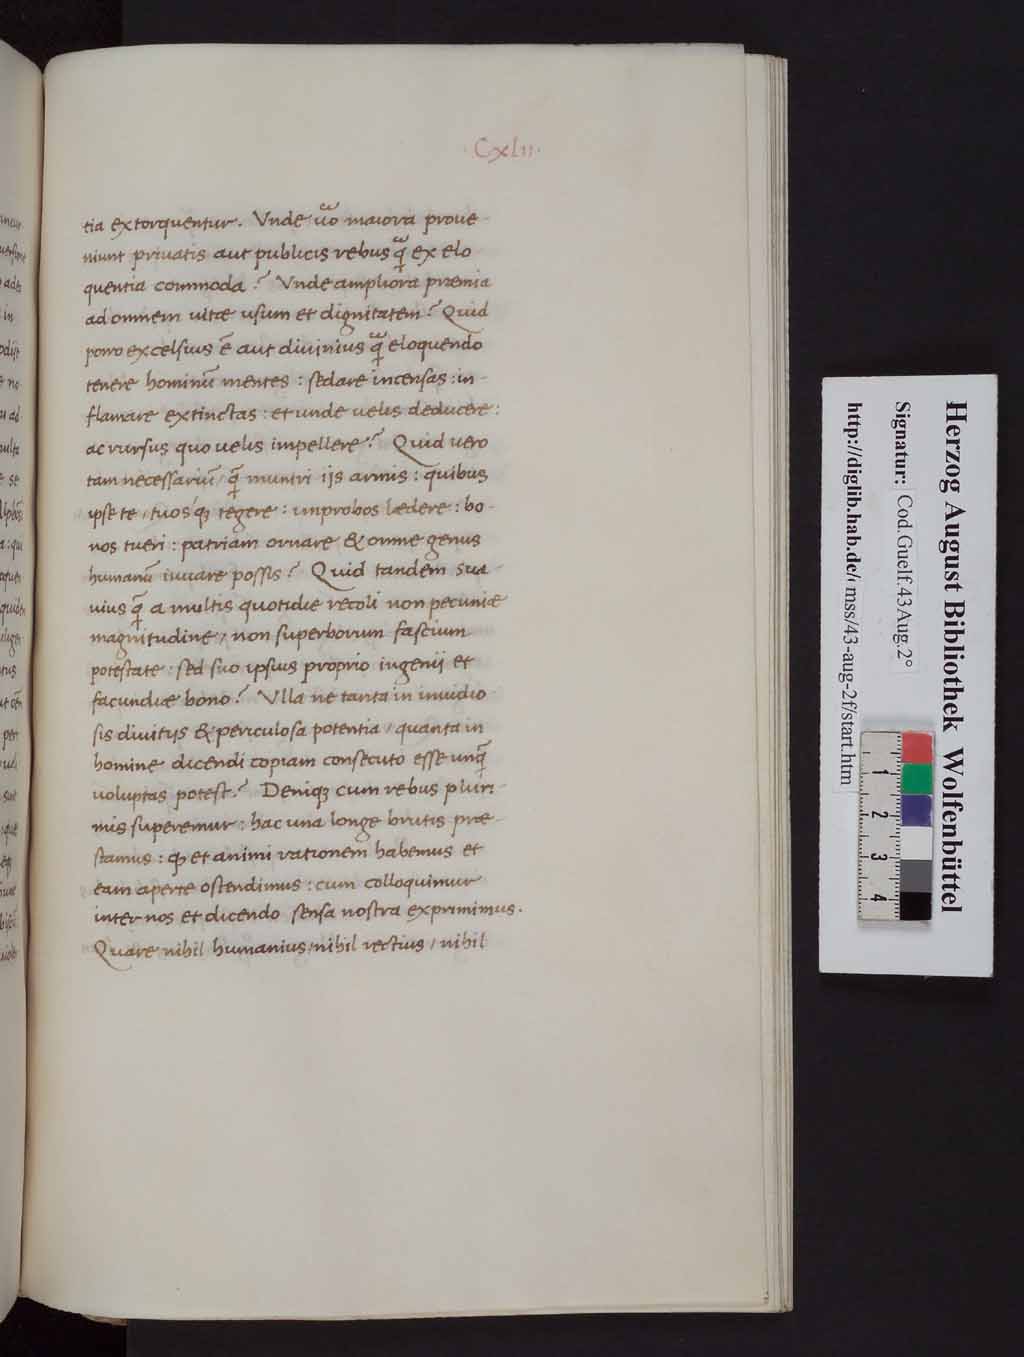 ·CxLII·
tia extorquentur. Vnde u͛o maiora proue-
niunt priuatis aut publicis rebus q̃ ex elo
quentia commoda? Vnde ampliora præmia
ad omnem uitæ usum et dignitatem? Quid
porro excelsius ē aut diuinius q̃ eloquendo
tenere hominū mentes: sedare incensas: in-
flamare extinctas: et unde uelis deducere:
ac rursus quo uelis impellere? Quid uero
tam necessariū / q̃ muniri ijs armis: quibus
ipse te / tuosq; tegere: improbos lædere: bo-
nos tueri: patriam ornare & omne genus
humanū iuuare possis? Quid tandem sua
uius q̃ a multis quotidie recoli non pecuniæ
magnitudine / non superborum fascium
potestate: sed suo ipsius proprio ingenij et
facundiæ bono? Vlla ne tanta in inuidio-
sis diuitijs & periculosa potentia / quanta in
homine dicendi copiam consecuto esse unq̃
uoluptas potest? Deniq; cum rebus pluri-
mis superemur: hac una longe brutis præ-
stamus: q; et animi rationem habemus et
eam aperte ostendimus: cum colloquimur
inter nos et dicendo sensa nostra exprimimus.
Quare nihil humanius / nihil rectius / nihil
Herzog August Bibliothek Wolfenbüttel
Signatur: Cod.Guelf.43 Aug.2°
http://diglib.hab.de/ mss/43-aug-2f/start.htm
1
2
3
4